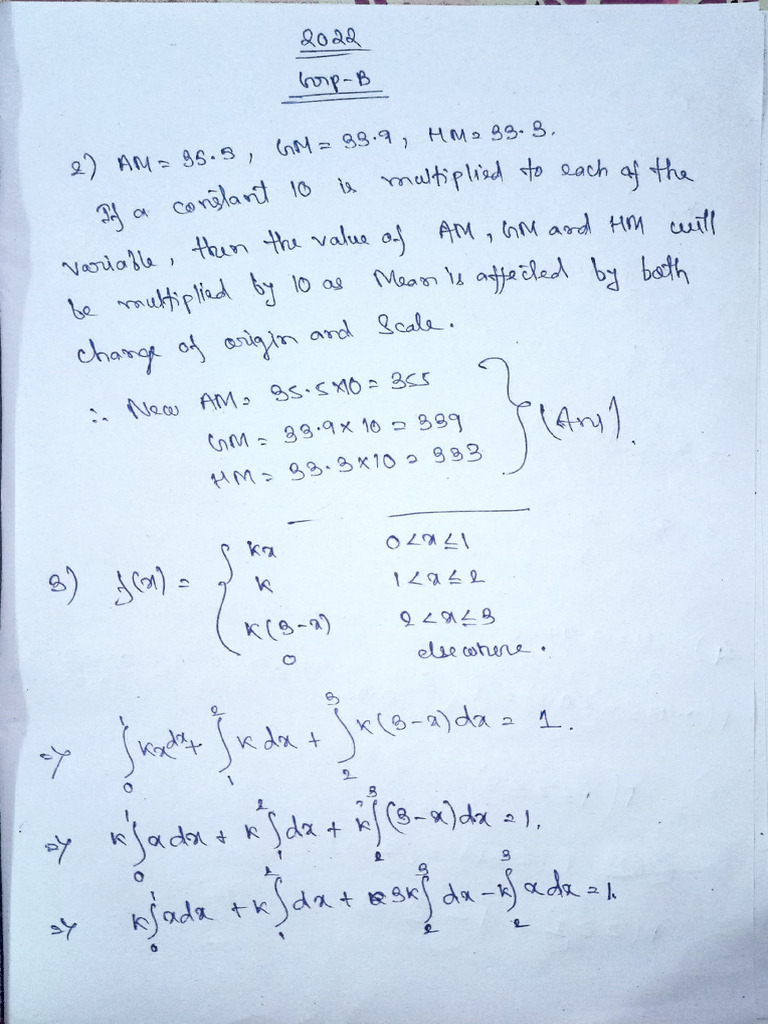 2022
Grp-B
2) AM = 35.5, GM = 33.9, HM = 33.3.
If a constant 10 is multiplied to each of the
variable, then the value of AM, GM and HM will
be multiplied by 10 as Mean is affected by both
change of origin and Scale.
∴ New AM = 35.5×10 = 355
GM = 33.9×10 = 339
HM = 33.3×10 = 333
(Ans).
3) f(x) = { kx 0<x≤1
k 1<x≤2
k(3-x) 2<x≤3
0 elsewhere.
⇒ ∫₀¹ kx dx + ∫₁² k dx + ∫₂³ k(3-x) dx = 1.
⇒ k∫₀¹ x dx + k∫₁² dx + k∫₂³ (3-x) dx = 1.
⇒ k∫₀¹ x dx + k∫₁² dx + 3k∫₂³ dx - k∫₂³ x dx = 1.